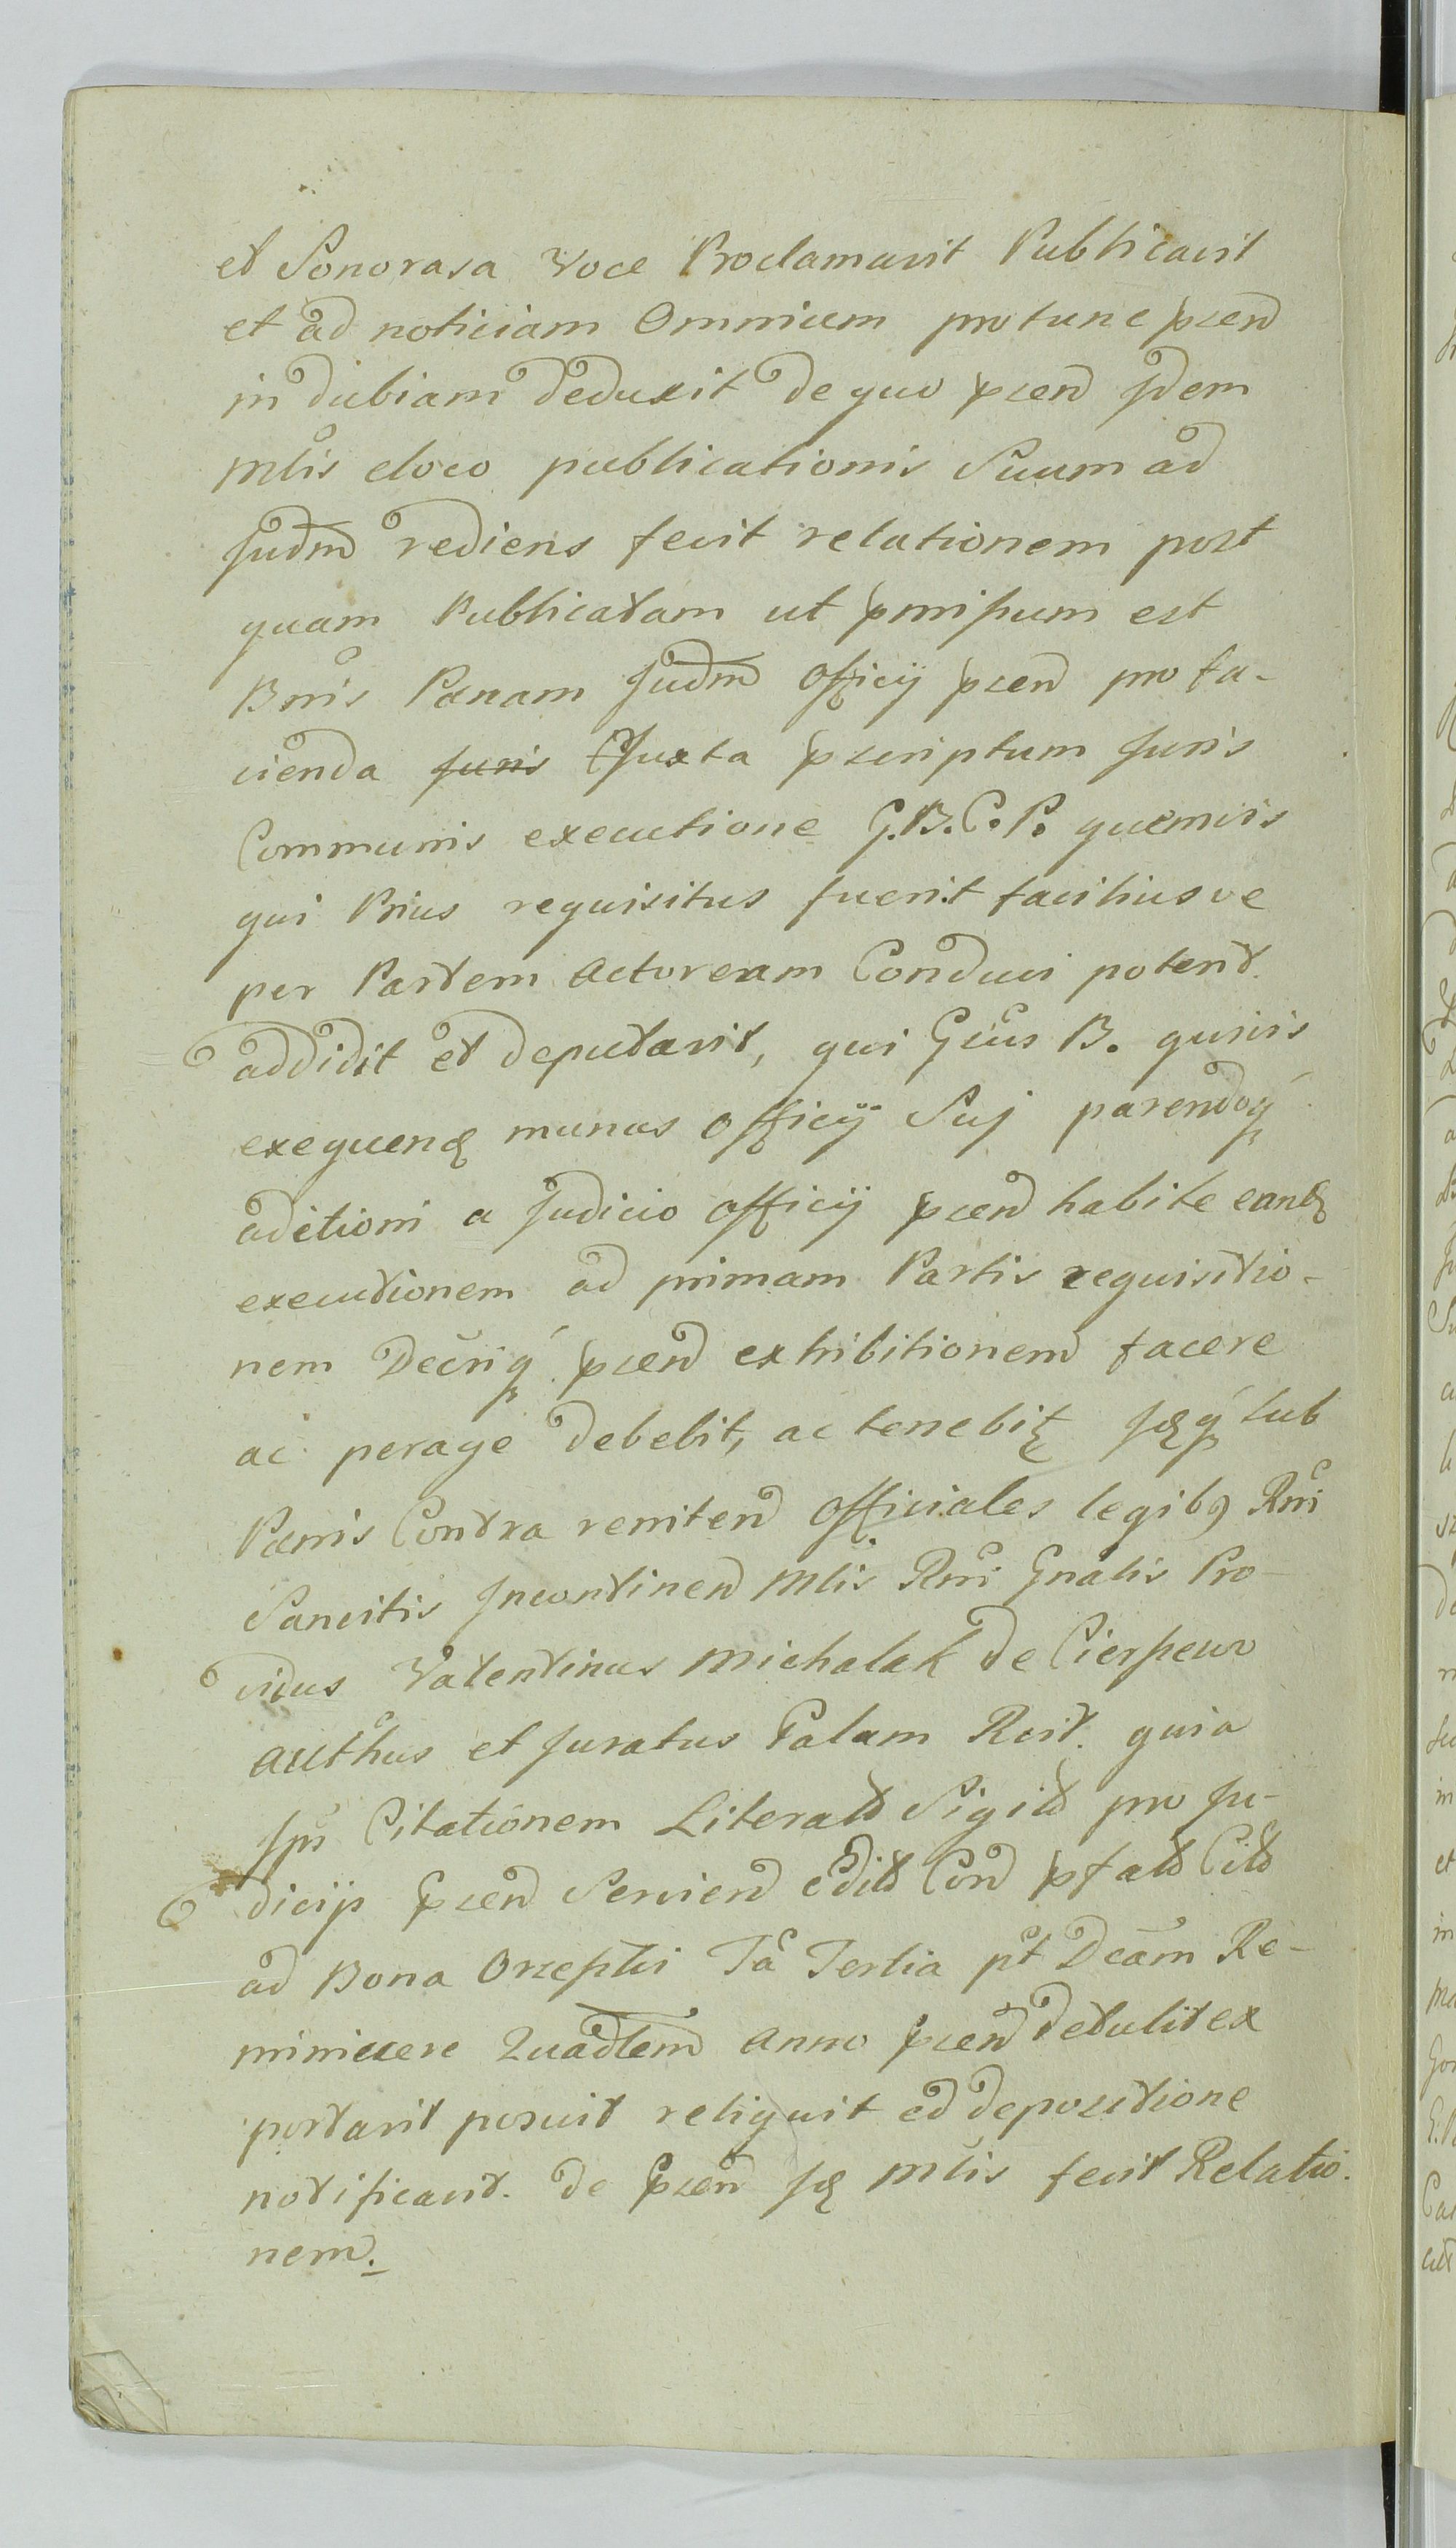 et Sonorasa Voce Proclamavit Publicavit
et ad noticiam Omnium protunc pscen̄
in dubiam deduxit de quo pscen̄ Jdem
Mlis eloco publicationis Suum ad
Judm̄ rediens fecit relationem post
quam Publicatam ut pmissum est
Bnis Pænam Judm̄ Officij pscen̄ pro fa-
cienda Juris Juxta pscriptum Juris
Communis executione G.B.C.P. quemvis
qui Prius requisitus fuerit faciliusve
per Partem Actoream Conduci poterit
addidit et deputavit, qui Gnus B. quivis
exequen̄ munus officij Suj parendoq́
aditioni a Judicio officij pscen̄ habite eand
executionem ad primam Partis requisitio-
nem Decriq́ pscen̄ exhibitionem facere
ac perage debebit, ac tenebit Jdq́ sub
Pænis Contra reniten̄ Officiales legib9 Rni
Sancitis Jncontinen̄ Mlis Rni Gnalis Pro-
vidus Valentinus Michalak de Cierpewo
Authus et Juratus Palam Rcit. quia
Jps Citationem Literalō Sigilō pro Ju-
dicijs pscen̄ Servien̄ editō Con̄ pfatō Citō
ad Bona Orzeptki Ta Tertia pt Dcam Re-
miniscere Quadlem̄ Anno pscen̄ detulit ex
portavit posuit reliquit ed depositione
notificavit. de pscen̄ Jd Mlis fecit Relatio.
nem.